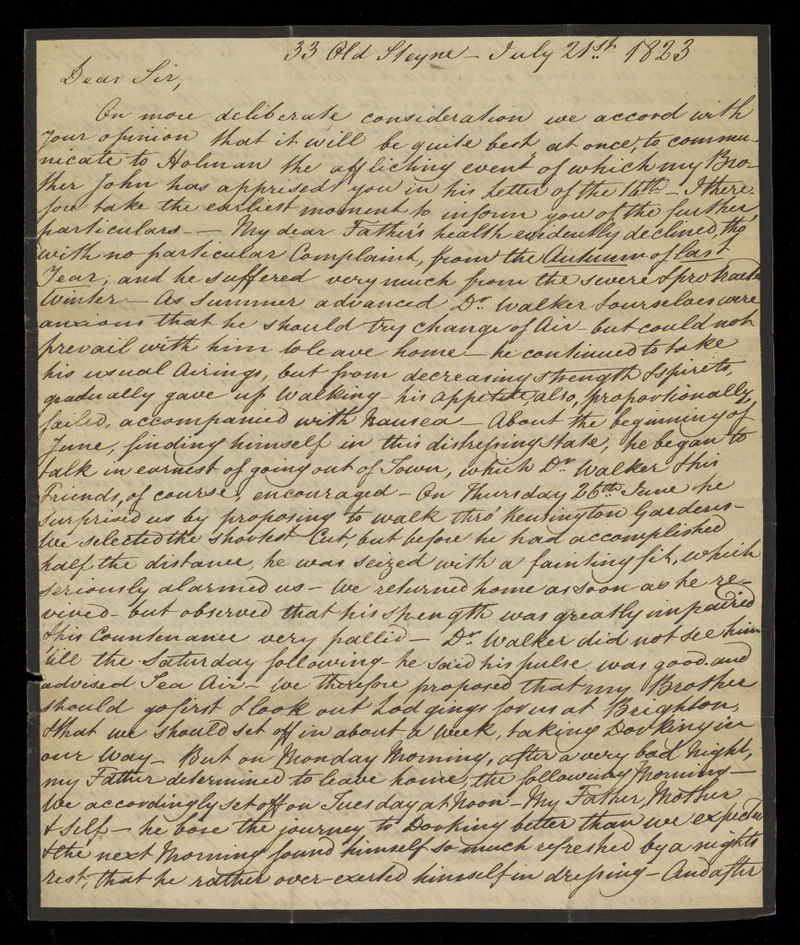 33 Old Steyne - July 21st. 1823
Dear Sir,
On more deliberate consideration we accord with
your opinion that it will be quite best at once, to commu-
nicate to Holman the afflicting event of which my Bro-
ther John has apprised you in his letter of the 14th - I there-
fore take the earliest moment to inform you of the further
particulars - My dear Father's health evidently declined, tho'
with no particular Complaint, from the Autumn of last
Year; and he suffered very much from the severe & protracted
Winter - As Summer advanced Dr. Walker & ourselves were
anxious that he should try change of Air - but could not
prevail with him to leave home - he continued to take
his usual Airings, but from decreasing strength & spirits,
gradually gave up walking - his appetite, also, proportionally
failed, accompanied with Nausea - About the beginning of
June, finding himself in this distressing state, he began to
talk in earnest of going out of Town, which Dr. Walker & his
Friends, of course, encouraged - On Thursday 26th. June he
surprised us by proposing to walk thro' Kensington Gardens -
We selected the shortest Cut, but before he had accomplished
half the distance, he was seized with a fainting fit, which
seriously alarmed us - We returned home as soon as he re-
vived - but observed that his strength was greatly impaired
& his Countenance very pallid - Dr. Walker did not see him
'till the Saturday following - he said his pulse was good - and
advised Sea Air - We therefore proposed that my Brother
should go first & look out Lodgings for us at Brighton,
& that we should set off in about a week, taking Dorking in
our way - But on Monday Morning, after a very bad Night,
my Father determined to leave home, the following Morning -
We accordingly set off on Tuesday at Noon - My Father, Mother
& Self - he bore the journey to Dorking better than we expected
& the next Morning found himself so much refreshed by a nights
rest, that he rather over-exerted himself in dressing - And after